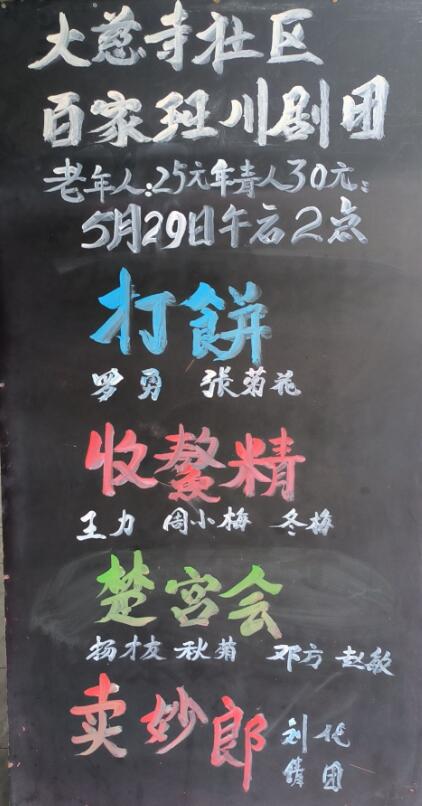 大慈寺社区
百家班川剧团
老年人:25元年青人30元:
5月29日午后2点
打餅
罗勇 张菊花
收鳌精
王力 周小梅 冬梅
楚宫会
杨才友 秋菊 邓方 赵敏
卖妙郎
刘 化
倩 团